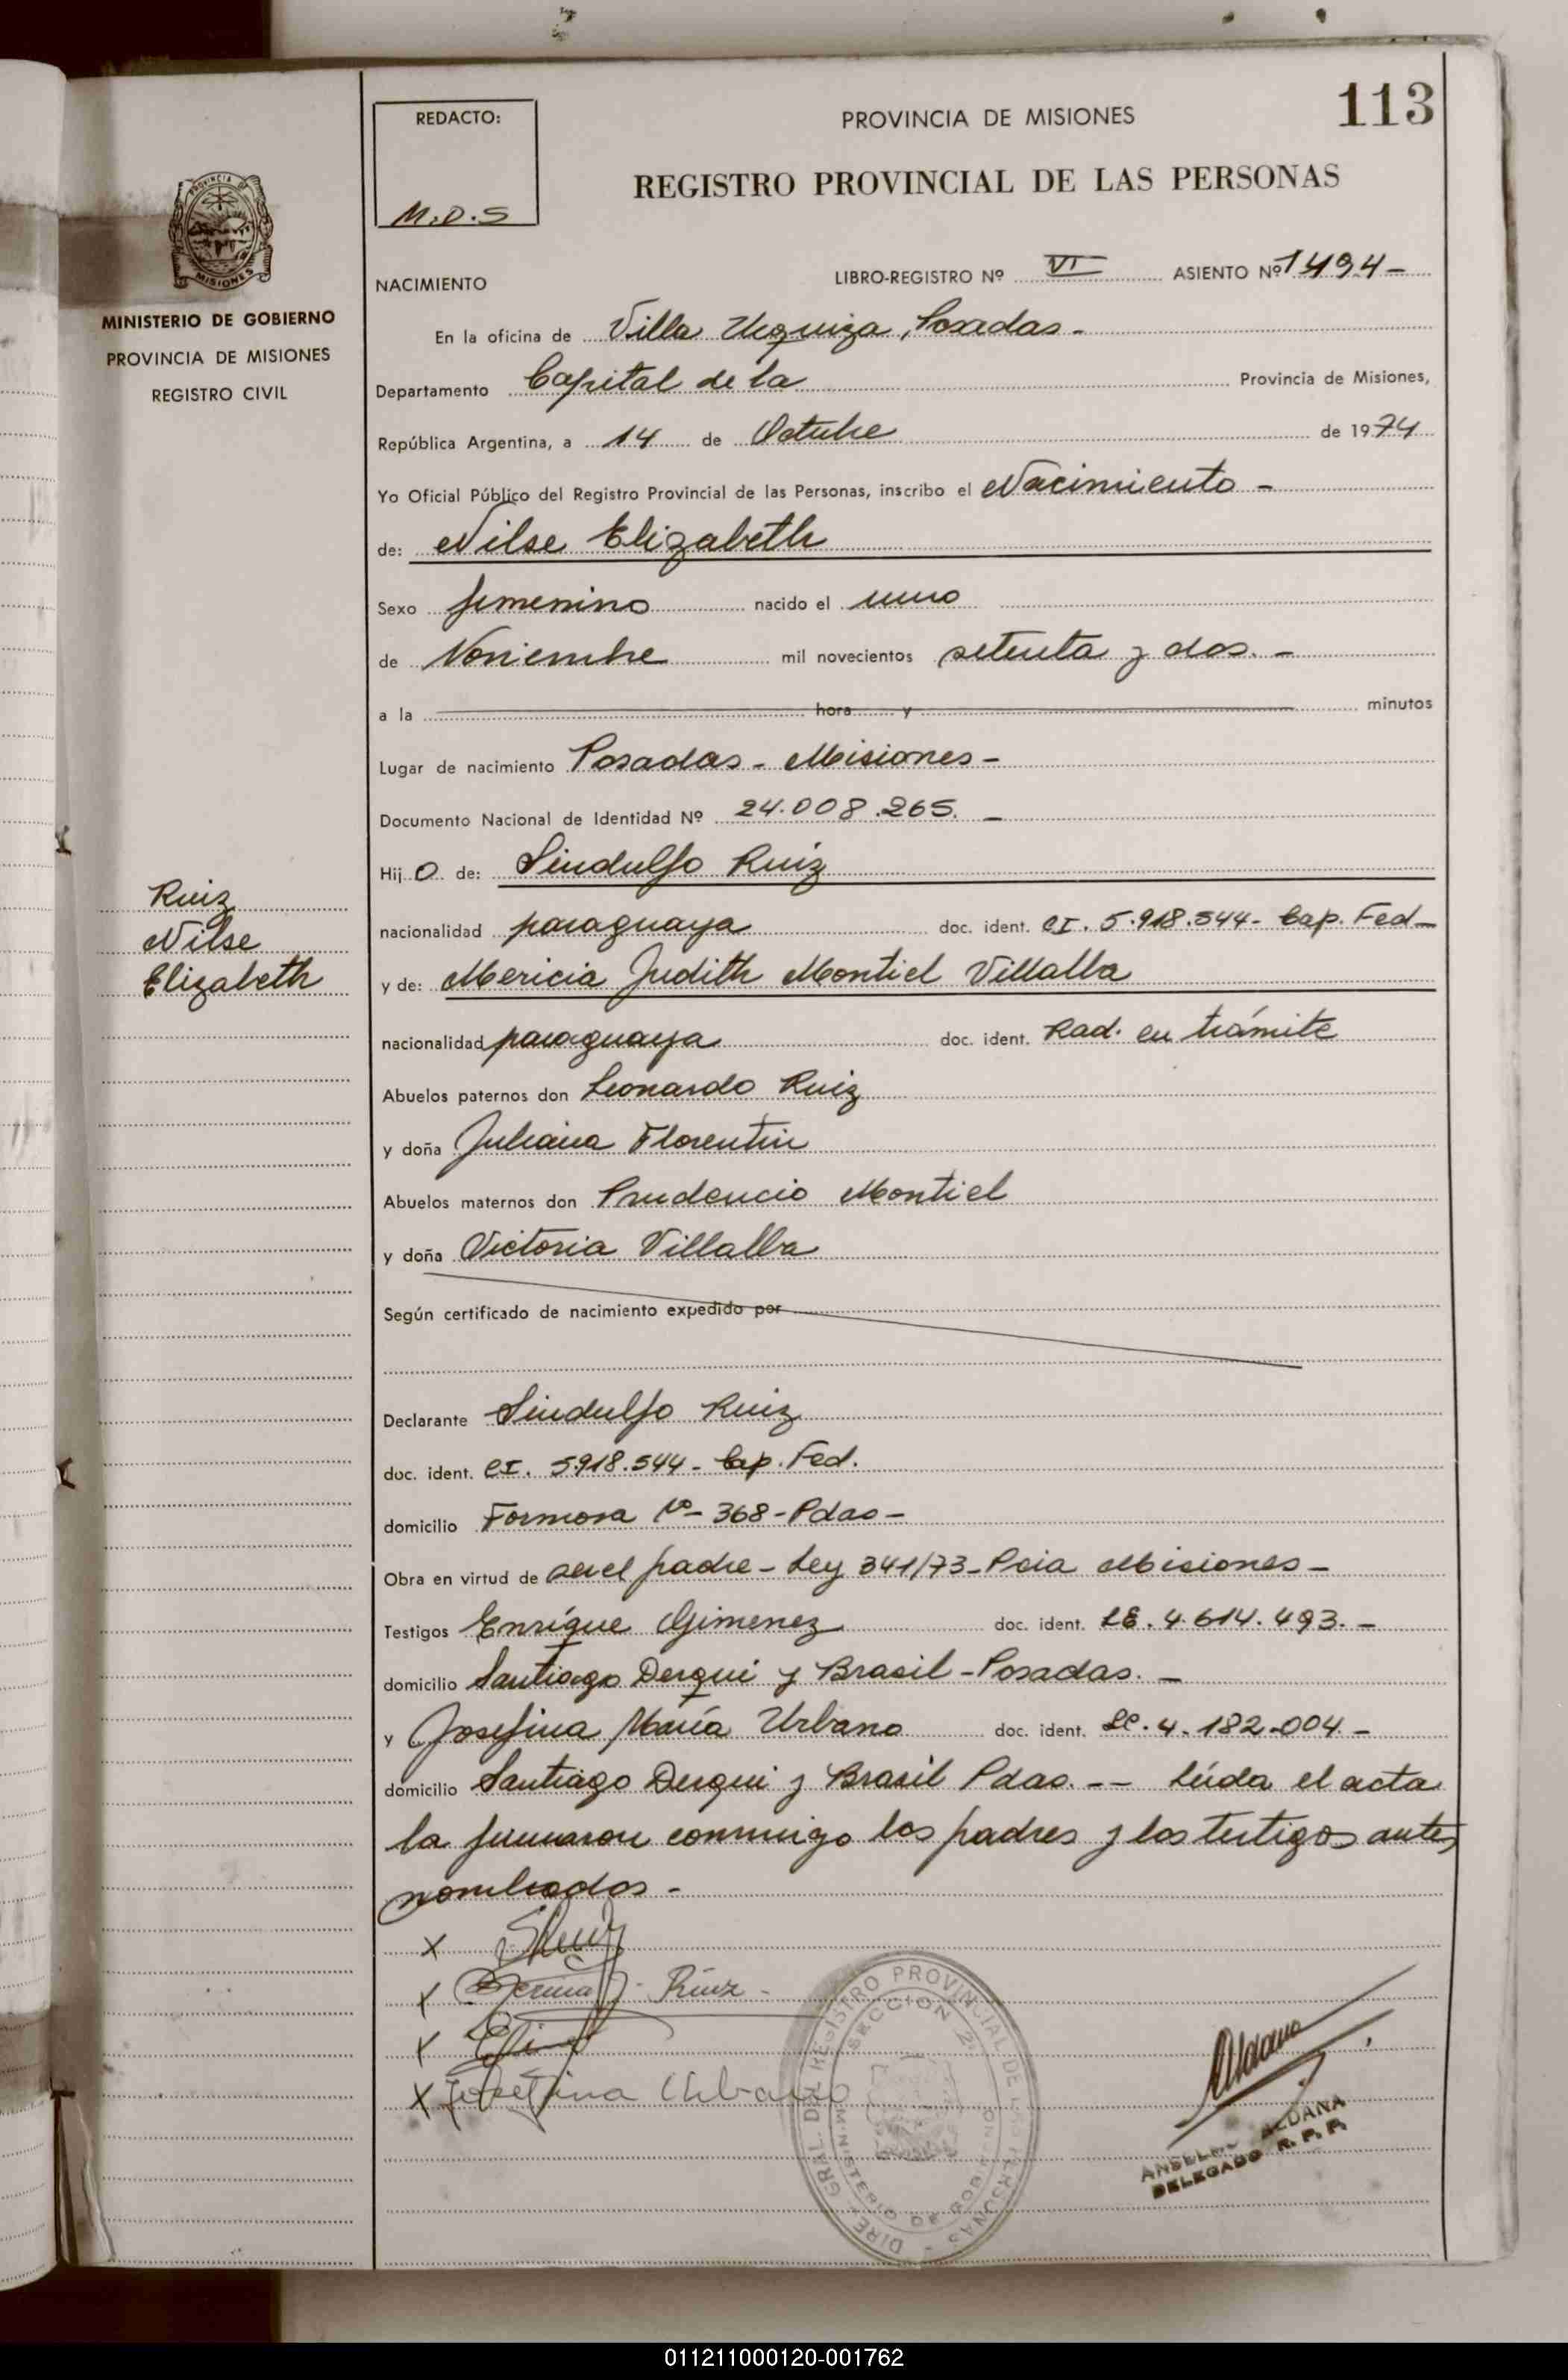 113
REDACTO:
M.D.S
PROVINCIA DE MISIONES
REGISTRO PROVINCIAL DE LAS PERSONAS
PROVINCIA DE
MISIONES
MINISTERIO DE GOBIERNO
PROVINCIA DE MISIONES
REGISTRO CIVIL
NACIMIENTO LIBRO-REGISTRO Nº VI ASIENTO Nº 1494-
En la oficina de Villa Urquiza, Posadas-
Departamento Capital de la Provincia de Misiones,
República Argentina, a 14 de Octubre de 1974
Yo Oficial Público del Registro Provincial de las Personas, inscribo el Nacimiento-
de: Nilse Elizabeth
Sexo femenino nacido el uno
de Noviembre mil novecientos setenta y dos.-
a la hora y minutos
Lugar de nacimiento Posadas - Misiones-
Documento Nacional de Identidad Nº 24.008.265.-
Hij O de: Sindulfo Ruiz
nacionalidad paraguaya doc. ident. CI. 5.918.544- Cap. Fed-
y de: Mericia Judith Montiel Villalba
nacionalidad paraguaya doc. ident. Rad. en trámite
Abuelos paternos don Leonardo Ruiz
y doña Juliana Florentin
Abuelos maternos don Prudencio Montiel
y doña Victoria Villalba
Según certificado de nacimiento expedido por
Declarante Sindulfo Ruiz
doc. ident. CI. 5.918.544- Cap. Fed.
domicilio Formosa Nº- 368-Pdas-
Obra en virtud de ser el padre- Ley 341/73-Pcia Misiones-
Testigos Enrique Gimenez doc. ident. LE. 4.614.493.-
domicilio Santiago Derqui y Brasil-Posadas.-
y Josefina María Urbano doc. ident. LC. 4.182.004.-
domicilio Santiago Derqui y Brasil Pdas.-- Leída el acta
la firmaron conmigo los padres y los testigos antes
nombrados-
Ruiz
Nilse
Elizabeth
x
x Ruiz-
x
x Josefina Urbano
DIRE. GRAL. DEL REGISTRO PROVINCIAL DE LAS PERSONAS
SECCION 2ª
MINISTERIO DE GOBIERNO
Aldana
ANSELMO ALDANA
DELEGADO R. P. P.
011211000120-001762